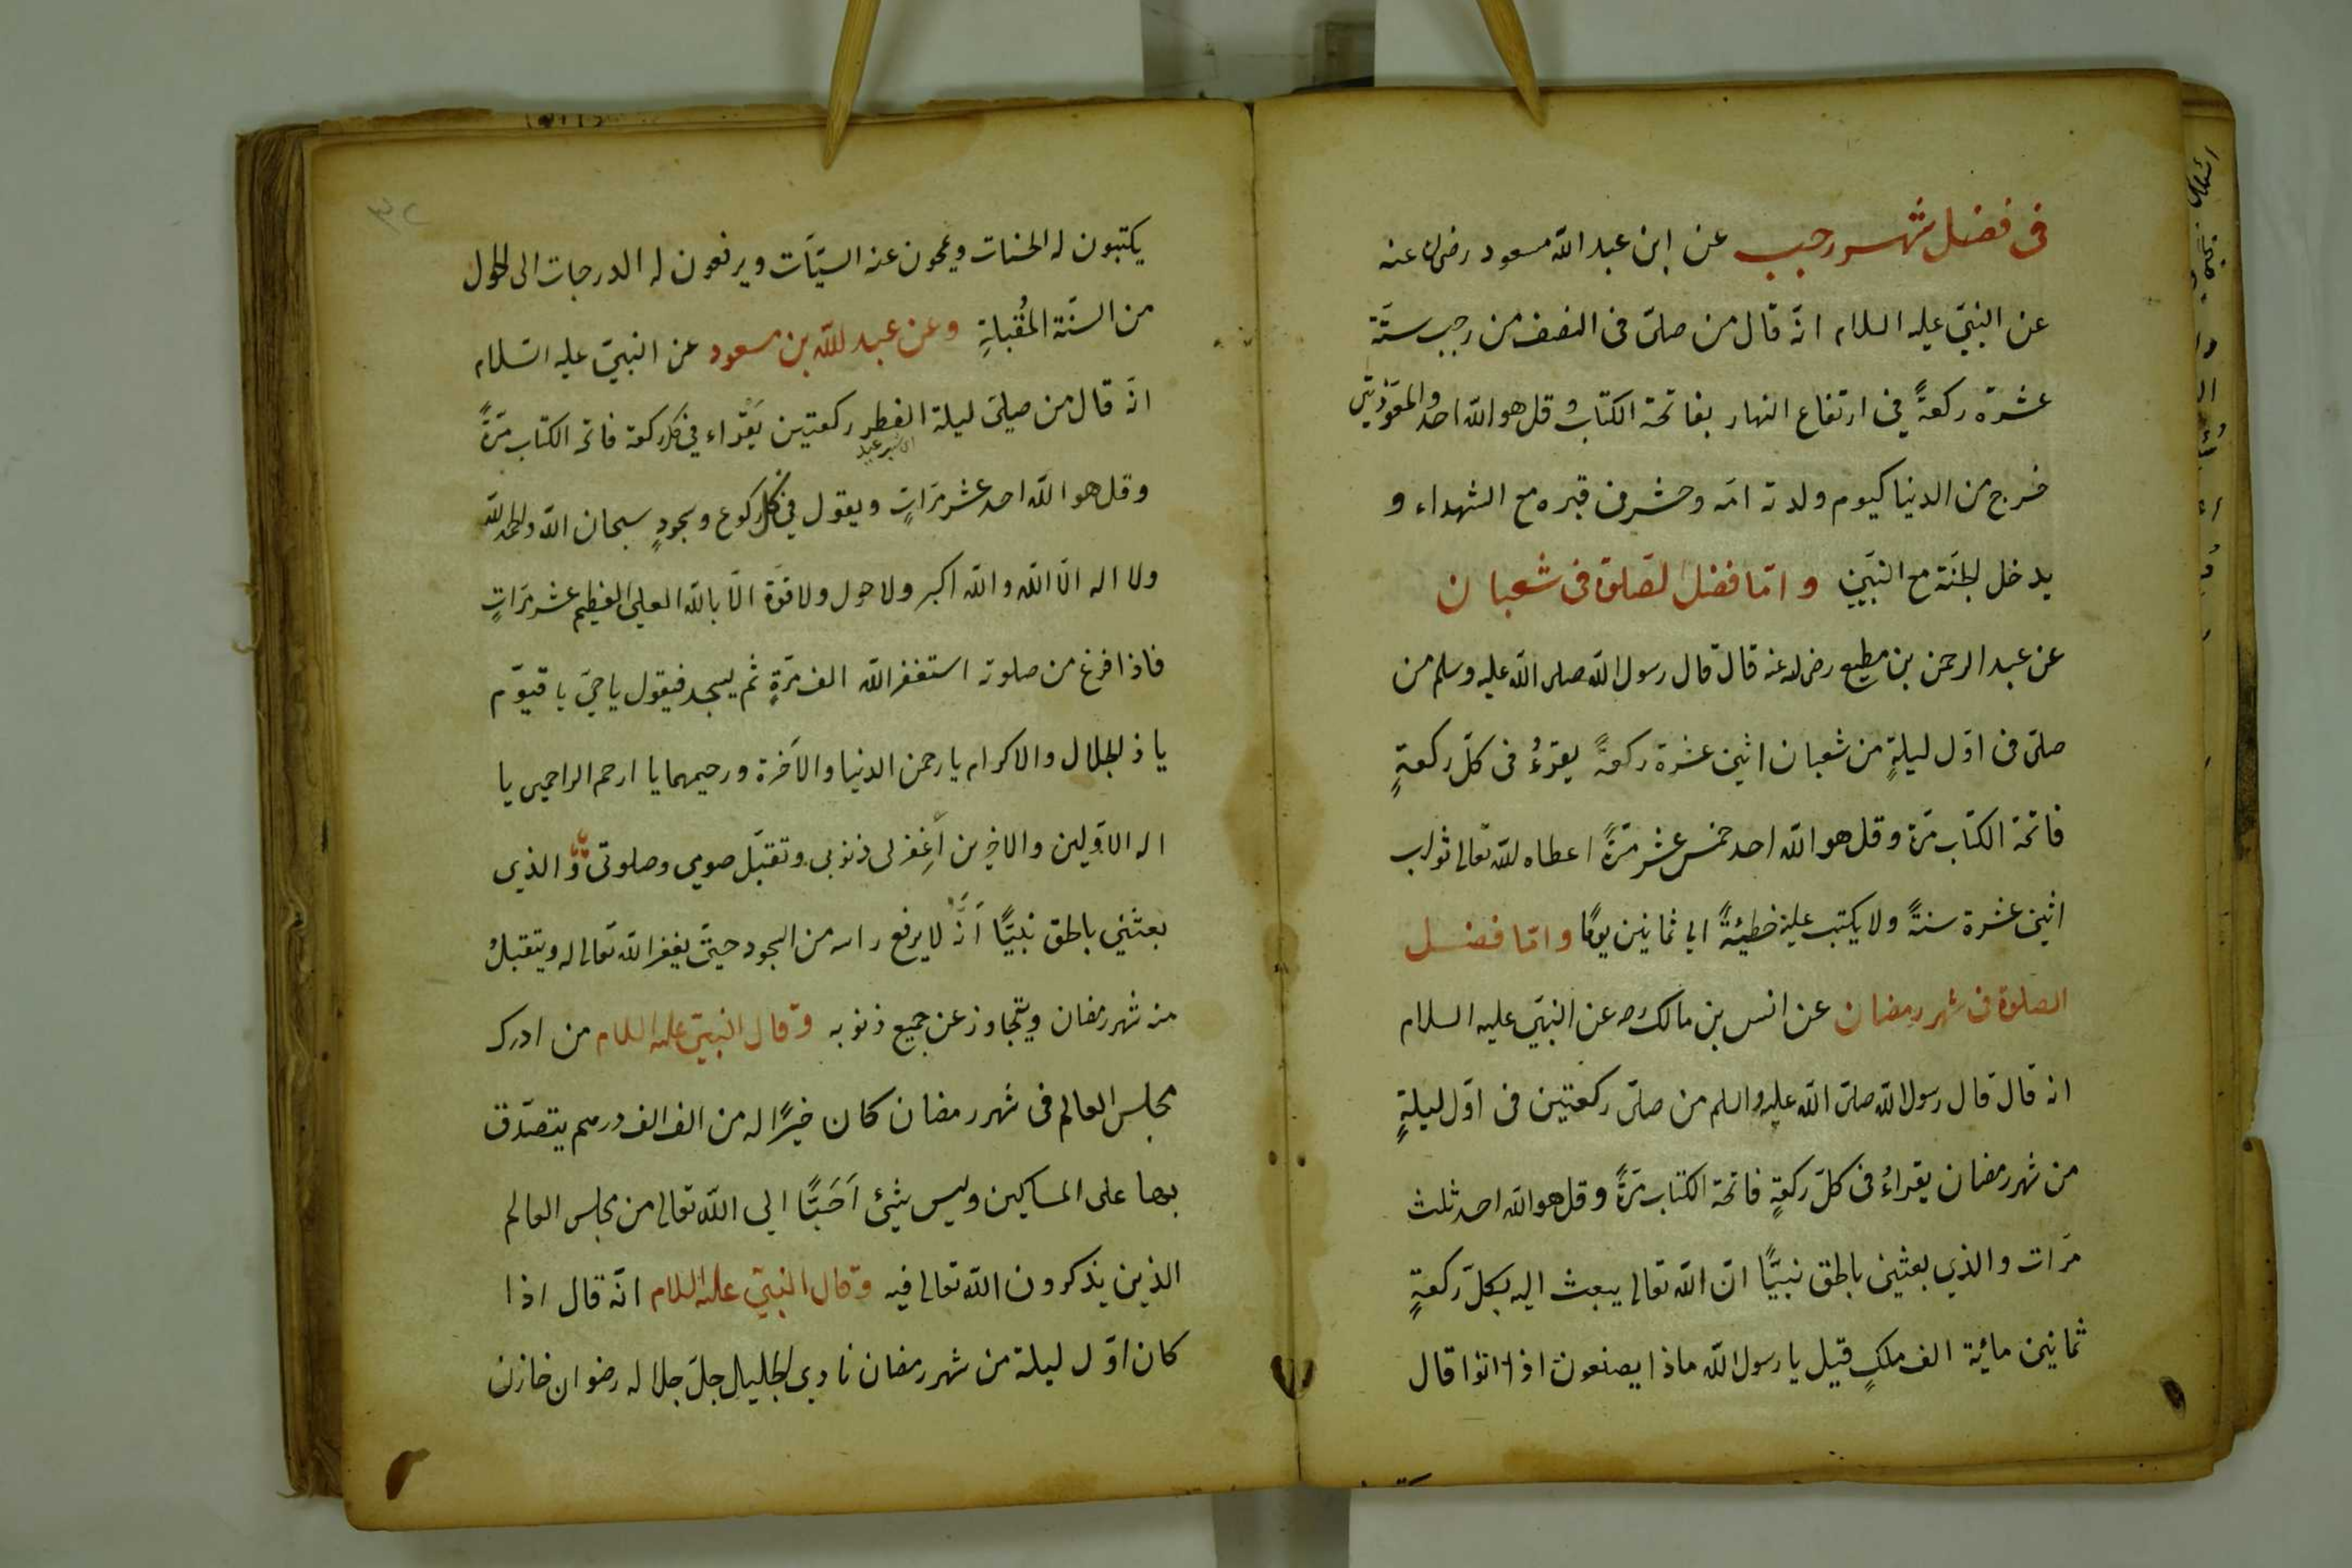 فى فضل شهر رجب عن ابن عبد الله مسعود رضى عنه
عن النبيّ عليه السلام انّه قال من صلّى فى النصف من رجب ستّة
عشرة ركعةً في ارتفاع النهار بفاتحة الكتاب و قل هو الله احد والمعوّذتين
خرج من الدنيا كيوم ولدته امّه وحشر من قبره مع الشهداء و
يدخل الجنّة مع النبيّين وامّا فضل الصّلوة فى شعبان
عن عبد الرحمن بن مطيع رضى الله عنه قال قال رسول الله صلى الله عليه وسلم من
صلّى فى اوّل ليلةٍ من شعبان اثنى عشرة ركعةً يقرءُ فى كلّ ركعةٍ
فاتحة الكتاب مرّة وقل هو الله احد خمس عشر مرّةً اعطاه الله تعالى ثواب
اثنى عشرة سنةً ولا يكتب عليه خطيئةً الى ثمانين يومًا وامّا فضل
الصلوة فى شهر رمضان عن انس بن مالك رضه عن النبيّ عليه السلام
انه قال قال رسول الله صلّى الله عليه والسلم من صلّى ركعتين فى اوّل ليلةٍ
من شهر رمضان يقراءُ فى كلّ ركعةٍ فاتحة الكتاب مرّةً وقل هو الله احد ثلث
مرّات والذي بعثنى بالحق نبيًّا انّ الله تعالى يبعث اليه بكلّ ركعةٍ
ثمانين مائية الف ملكٍ قيل يا رسول الله ماذا يصنعون اذا اتوا قال
٣٢
يكتبون له الحسنات ويمحون عنه السيّآت ويرفعون له الدرجات الى الحول
من السنّة المُقبلةِ وعن عبد الله بن مسعود عن النبيّ عليه السّلام
انّه قال من صلّى ليلة الفطر ركعتين يَقراء في كل ركعة فاتحة الكتاب مرّةً
وقل هو الله احد عشر مرّاتٍ ويقول في كلّ ركوع وسجودٍ سبحان الله والحمد لله
ولا اله الّا الله والله اكبر ولا حول ولا قوّة الّا بالله العلي العظيم عشر مرّاتٍ
فاذا فرغ من صلوته استغفر الله الف مرّةٍ ثم يسجد فيقول يا حيّ يا قيّوم
يا ذ الجلال والاكرام يا رحمن الدنيا والآخرة ورحيمهما يا ارحم الراحمين يا
اله الاوّلين والاخرين اغفر لى ذنوبى وتقبّل صومى وصلوتى وّ الذى
بعثني بالحق نبيًّا أنّه لا يرفع راسه من السجود حتّى يغفر الله تعالى له ويتقبلُ
منه شهر رمضان ويتجاوز عن جميع ذنوبه وقال النبيّ عليه السلام من ادرك
مجلس العالم فى شهر رمضان كان خيرًا له من الف الف درهم يتصدّق
بها على المساكين وليس شئ اَحَبًّا الى الله تعالى من مجلس العالم
الذين يذكرون الله تعالى فيه وقال النبيّ عليه السلام انّه قال اذا
كان اوّل ليلة من شهر رمضان نادى الجليل جلّ جلاله رضوان خازن